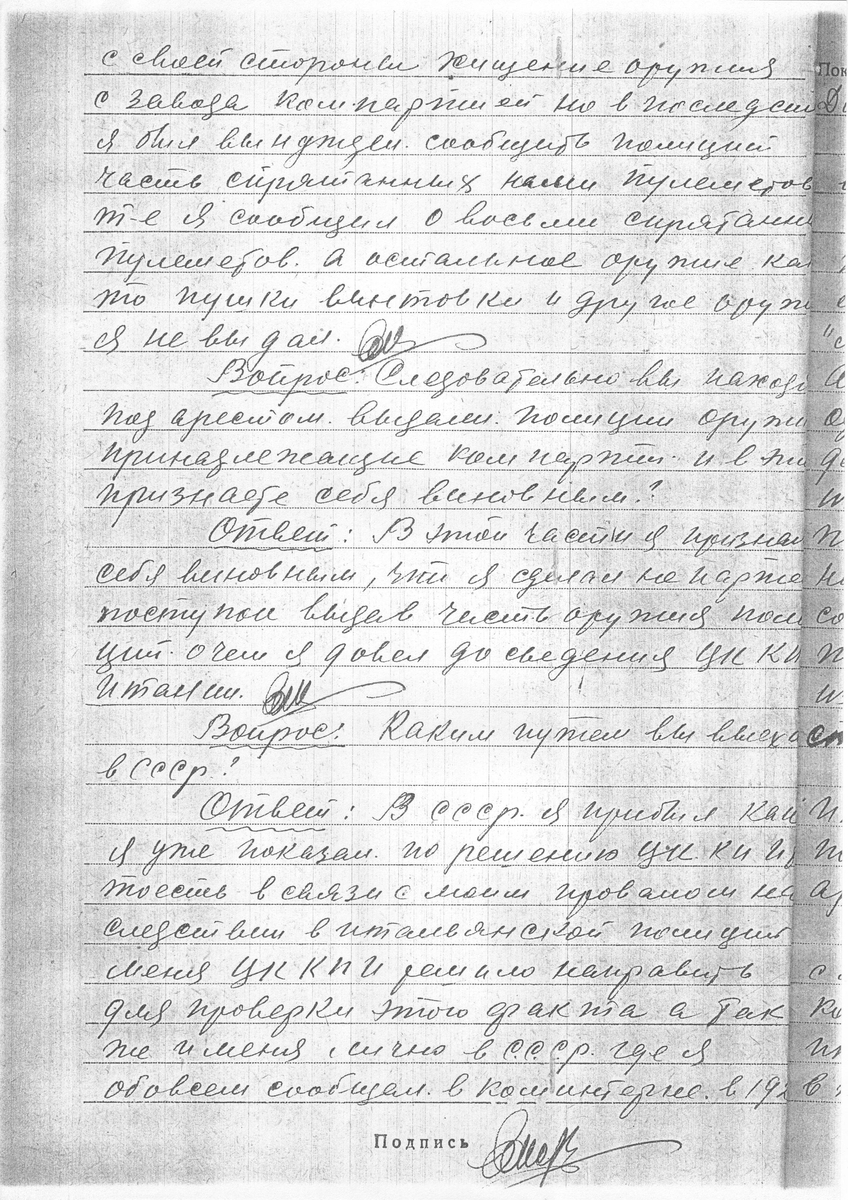 с своей стороны хищение оружия
с завода компартией но в последст
я был вынужден. сообщить полиции
часть спрятанных нами пулеметов
т-е я сообщил о восьми спрятанн
пулеметов. а остальное оружие ка
то пушки винтовки и другое оруж
я не выдал.
Вопрос: Следовательно вы находя
под арестом. выдали. полиции оружи
принадлежащие компартии. и в эт
признаете себя виновным?
Ответ: В этой части я признаю
себя виновным, что я сделал не парти
поступок выдав часть оружия поли
ции. о чем я довел до сведения ЦК КП
Италии.
Вопрос: Каким путем вы выеха
в СССР?
Ответ: В СССР. я прибыл как
я уже показал. по решению ЦК. КП И
тоесть в связи с моим провалом на
следствии в итальянской полиции
меня ЦК КПИ решило направить
для проверки этого факта а так
же и меня лично в СССР. где я
обовсем сообщал. в коминтерне. в 192
Подпись